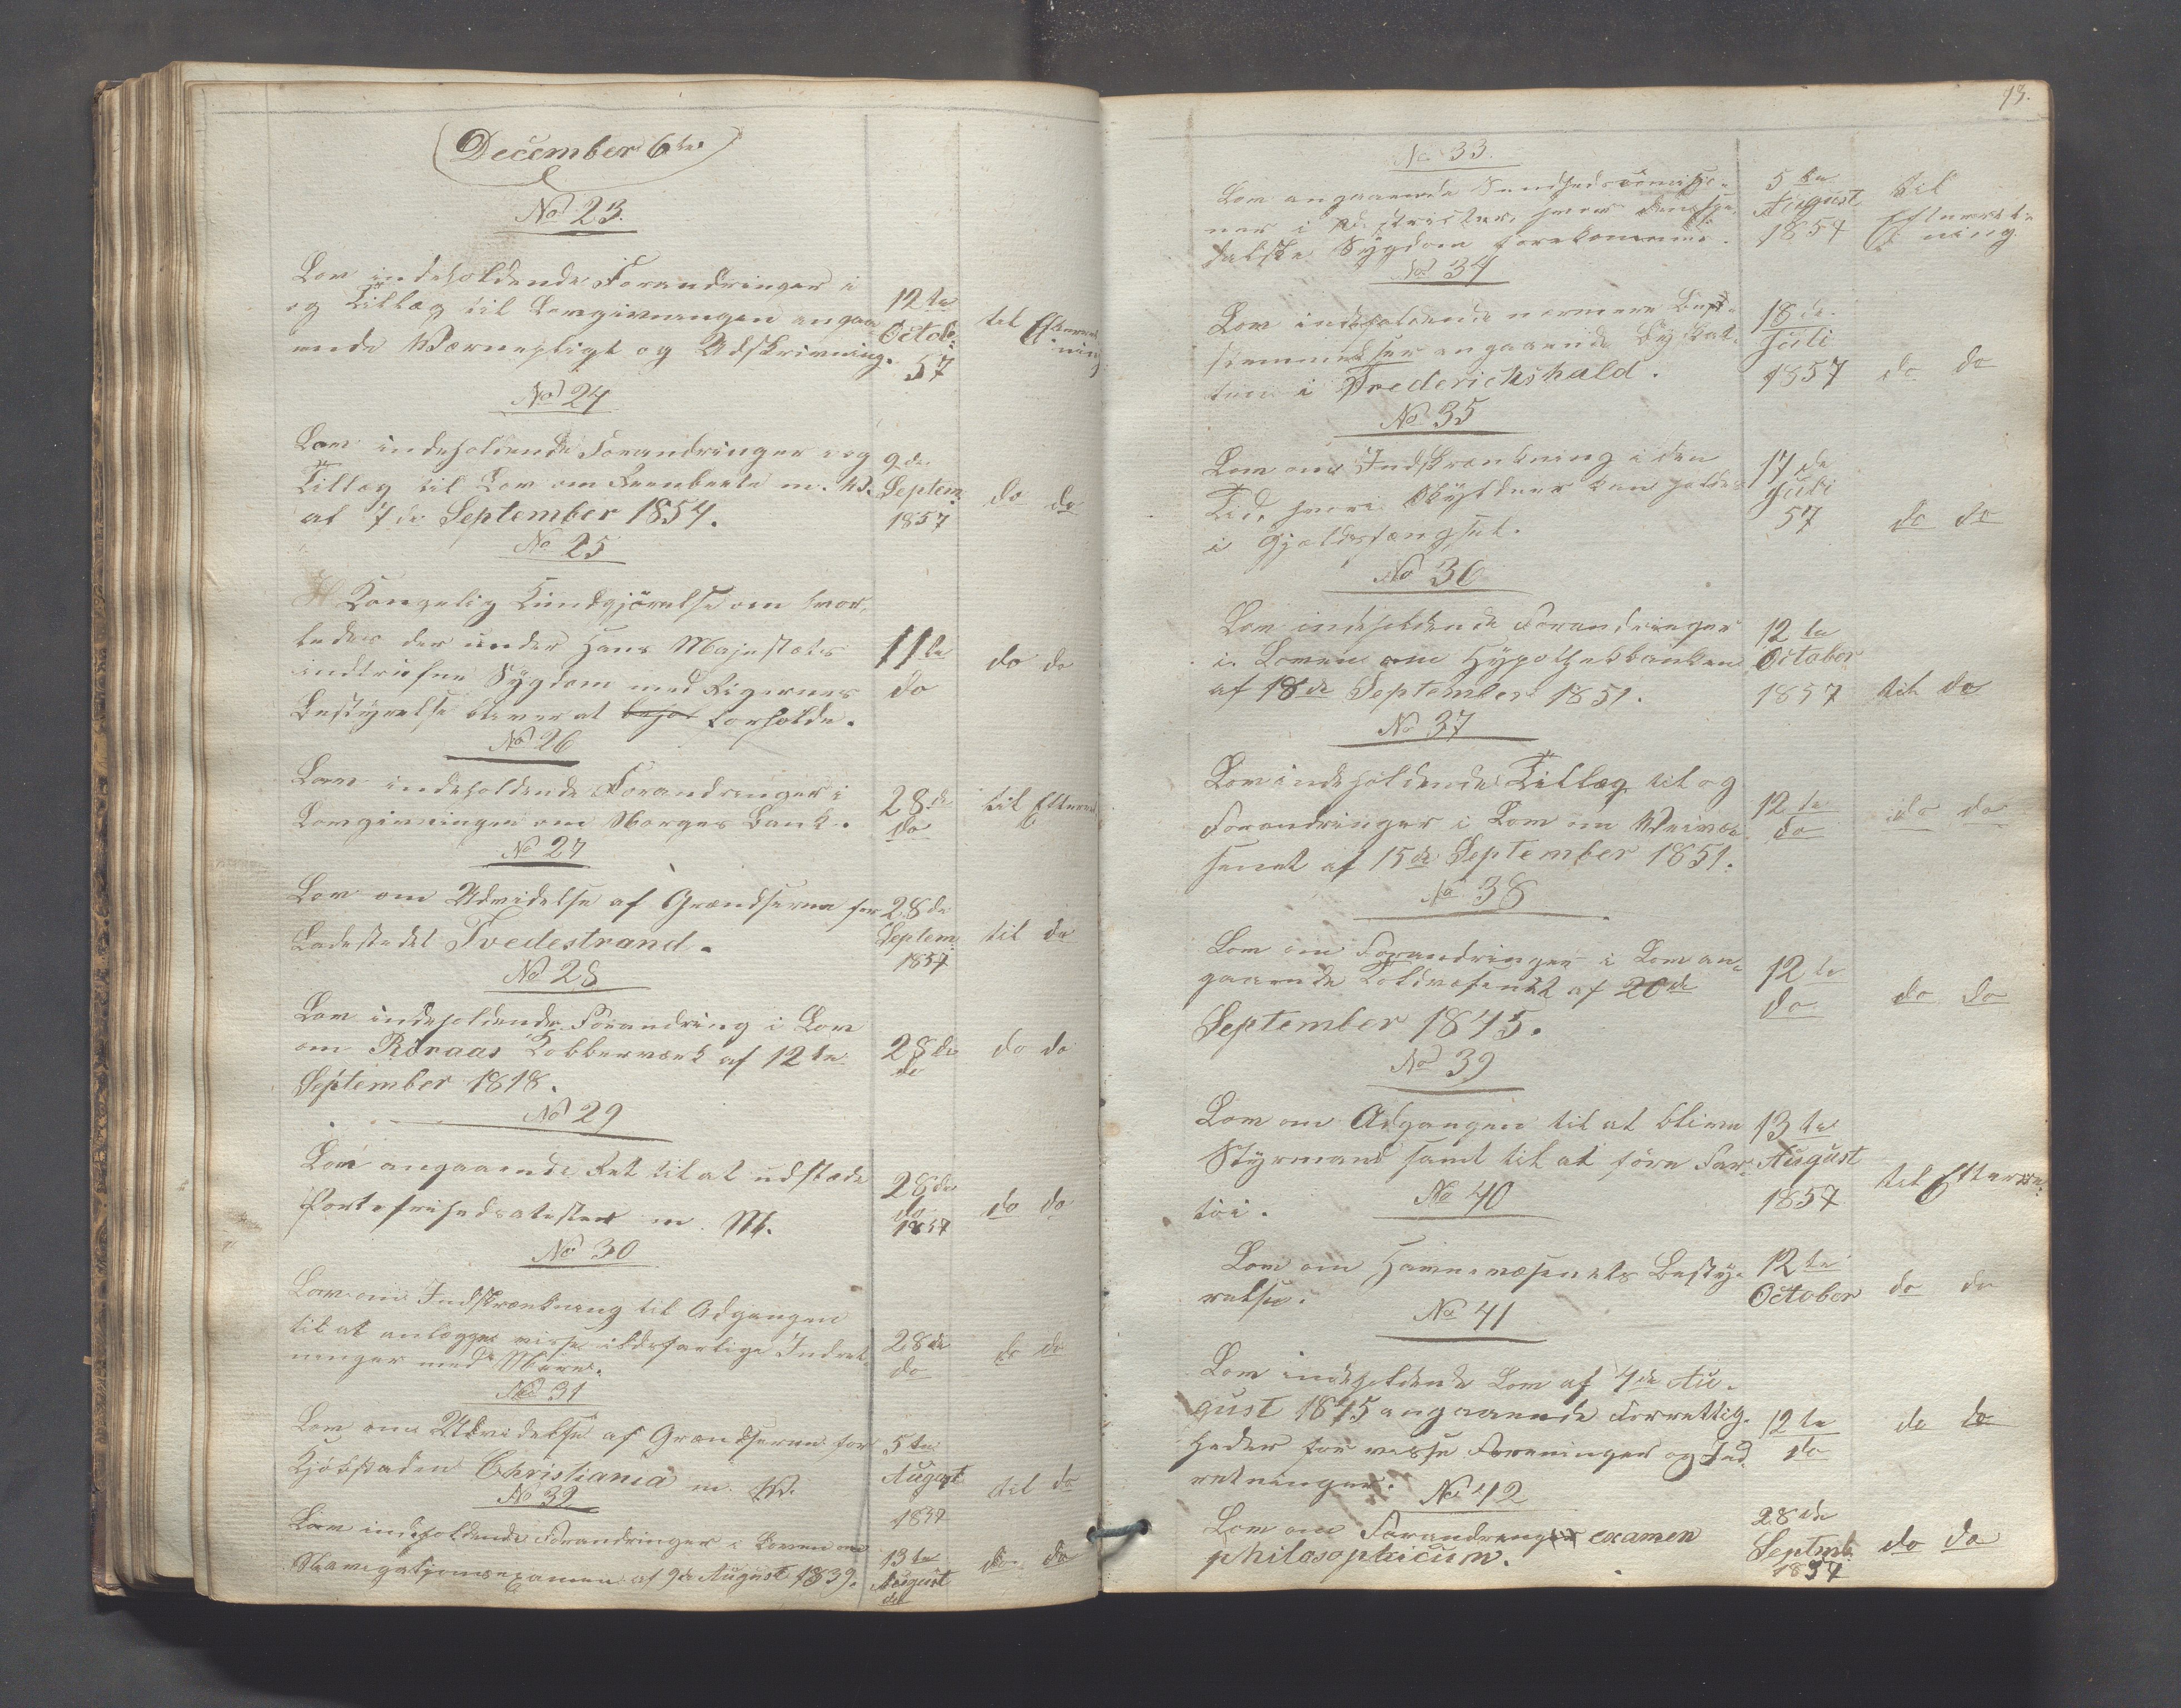 December 6te
No 23.
Lov indeholdende Forandringer i
og Tillæg til Lovgivningen angaa-
ende Wærnepligt og Udskrivning.
12te
Octob.
57
til Efterret
ning
No 24
Lov indeholdende Forandringer i og
Tillæg til Lov om m. W.
af 7de September 1854.
9de
Septem.
1857
do do
No 25
Kongelig Kundgjörelse om hvor-
ledes der under Hans Majestæts
indtrufne Sygdom med Rigernes
Bestyrelse bliver at forholde.
11te
do
do do
No 26
Lov indeholdende Forandringer i
Lovgivningen om Norges Bank.
28de
do
til Efterret
No 27
Lov om Udvidelse af Grændserne for
Ladestedet Tvedestrand.
28de
Septem.
1857
til do
No 28
Lov indeholdende Forandring i Lov
om Röraas Kobberværk af 12te
September 1818.
28de
do
do do
No 29
Lov angaaende Ret til at udstæde
Portofrihedsatester m. M.
28de
do
1857
do do
No 30
Lov om Indskrænkning til Adgangen
til at anlægge visse ildsfarlige Indret-
ninger med Mere.
28de
do
do do
No 31
Lov om Udvidelse af Grændserne for
Kjöbstaden Christiania m. W.
5te
August
1857
til do
No 32
Lov indeholdende Forandringer i Loven om
Navigationsexamen af 9de August 1839.
13te
August
do do
13.
No 33.
Lov angaaende Sundhedscomissio-
ner i Districter, hvor den spe-
dalske Sygdom forekommer.
5te
August
1857
til
Efterret-
ning
No 34
Lov indeholdende nærmere Best-
emmelser angaaende Byskat-
ten i Frederickshald.
18de
Juli
1857
do do
No 35
Lov om Indskrænkning i den
Tid, hvori Skyldner kan holdes
i Gjældsfængsel.
17de
Juli
57
do do
No 36
Lov indeholdende Forandringer
i Loven om Hypothekbanken
af 18de September 1851.
12te
October
1857
til do
No 37
Lov indeholdende Tillæg til og
Forandringer i Lov om Veivæ-
senet af 15de September 1851.
12te
do
do do
No 38
Lov om Forandringer i Lov an-
gaaende Toldvæsenet af 20de
September 1845.
12te
do
do do
No 39
Lov om Adgangen til at blive
Styrmand samt til at före Far-
töi.
13te
August
1857
til Efterre-
No 40
Lov om Havnevæsenets Besty-
relse.
12te
October
do do
No 41
Lov indeholdende Lov af 4de Au-
gust 1845 angaaende Forrettig-
heder for visse Foreninger og Ind-
retninger.
12te
do
do do
No 42
Lov om Forandringer examen
philosophicum.
28de
Septmb.
1857
do do